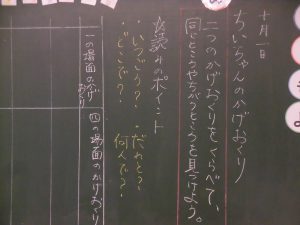 十月一日
ちいちゃんのかげおくり
二つのかげおくりをくらべて、
同じところやちがうところを見つけよう。
音読みのポイント
・いつごろ？・だれと？
・どこで？・何人で？
一の場面のかげおくり
四の場面のかげおくり